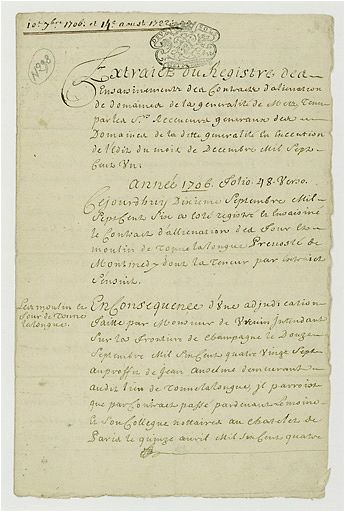 10e 7bre 1706. et 14e aoust 1722
N° 98
Extraict du Registre des
Ensaisinements des Contracts d'alienation
de Domaines de la generalité de Metz Tenu
par les Srs Receveurs generaux des
Domaines de la ditte generalité en Execution
de l'Edit du mois de Decembre Mil Sept
Cent Un.
Année 1706. folio. 48. Verso.
Cejourdhuy Dixieme Septembre Mil
Sept Cent Six a esté registré et Ensaisiné
le Contract d'allienation des four et
moulin de Tonnelalongue Prevosté de
Montmedy dont la Teneur par Extrait
Sensuit.
Les moulin et
four de Tonne
lalongue.
En Consequence d'Une adjudication
faitte par Monsieur de Intendant
Sur la frontiere de Champagne le Douze
Septembre Mil Six Cent quatre Vingt Sept
au proffit de Jean Anselme demeurant
audit lieu de Tonnelalongue, il paroist
que par Contract passé pardevant Lemoine
et Son Collegue nottaires au Chastelet de
Paris le quinze avril Mil Six Cent quatre